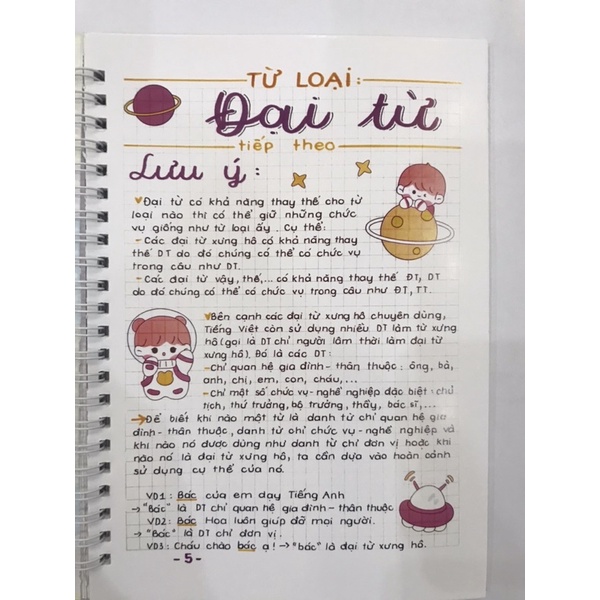 TỪ LOẠI:
Đại từ
tiếp theo
Lưu ý:
Đại từ có khả năng thay thế cho từ
loại nào thì có thể giữ những chức
vụ giống như từ loại ấy. Cụ thể:
- Các đại từ xưng hô có khả năng thay
thế DT do đó chúng có thể có chức vụ
trong câu như DT.
- Các đại từ vậy, thế,... có khả năng thay thế ĐT, DT
do đó chúng có thể có chức vụ trong câu như ĐT, TT.
Bên cạnh các đại từ xưng hô chuyên dùng,
Tiếng Việt còn sử dụng nhiều DT làm từ xưng
hô (gọi là DT chỉ người lâm thời làm đại từ
xưng hô). Đó là các DT:
- Chỉ quan hệ gia đình - thân thuộc: ông, bà,
anh, chị, em, con, cháu,...
- Chỉ một số chức vụ - nghề nghiệp đặc biệt: chủ
tịch, thứ trưởng, bộ trưởng, thầy, bác sĩ,...
→ Để biết khi nào một từ là danh từ chỉ quan hệ gia
đình - thân thuộc, danh từ chỉ chức vụ - nghề nghiệp và
khi nào nó được dùng như danh từ chỉ đơn vị hoặc khi
nào nó là đại từ xưng hô, ta cần dựa vào hoàn cảnh
sử dụng cụ thể của nó.
VD1: Bác của em dạy Tiếng Anh
→ "Bác" là DT chỉ quan hệ gia đình - thân thuộc
VD2: Bác Hoa luôn giúp đỡ mọi người.
→ "Bác" là DT chỉ đơn vị.
VD3: Cháu chào bác ạ! → "bác" là đại từ xưng hô.
- 5 -